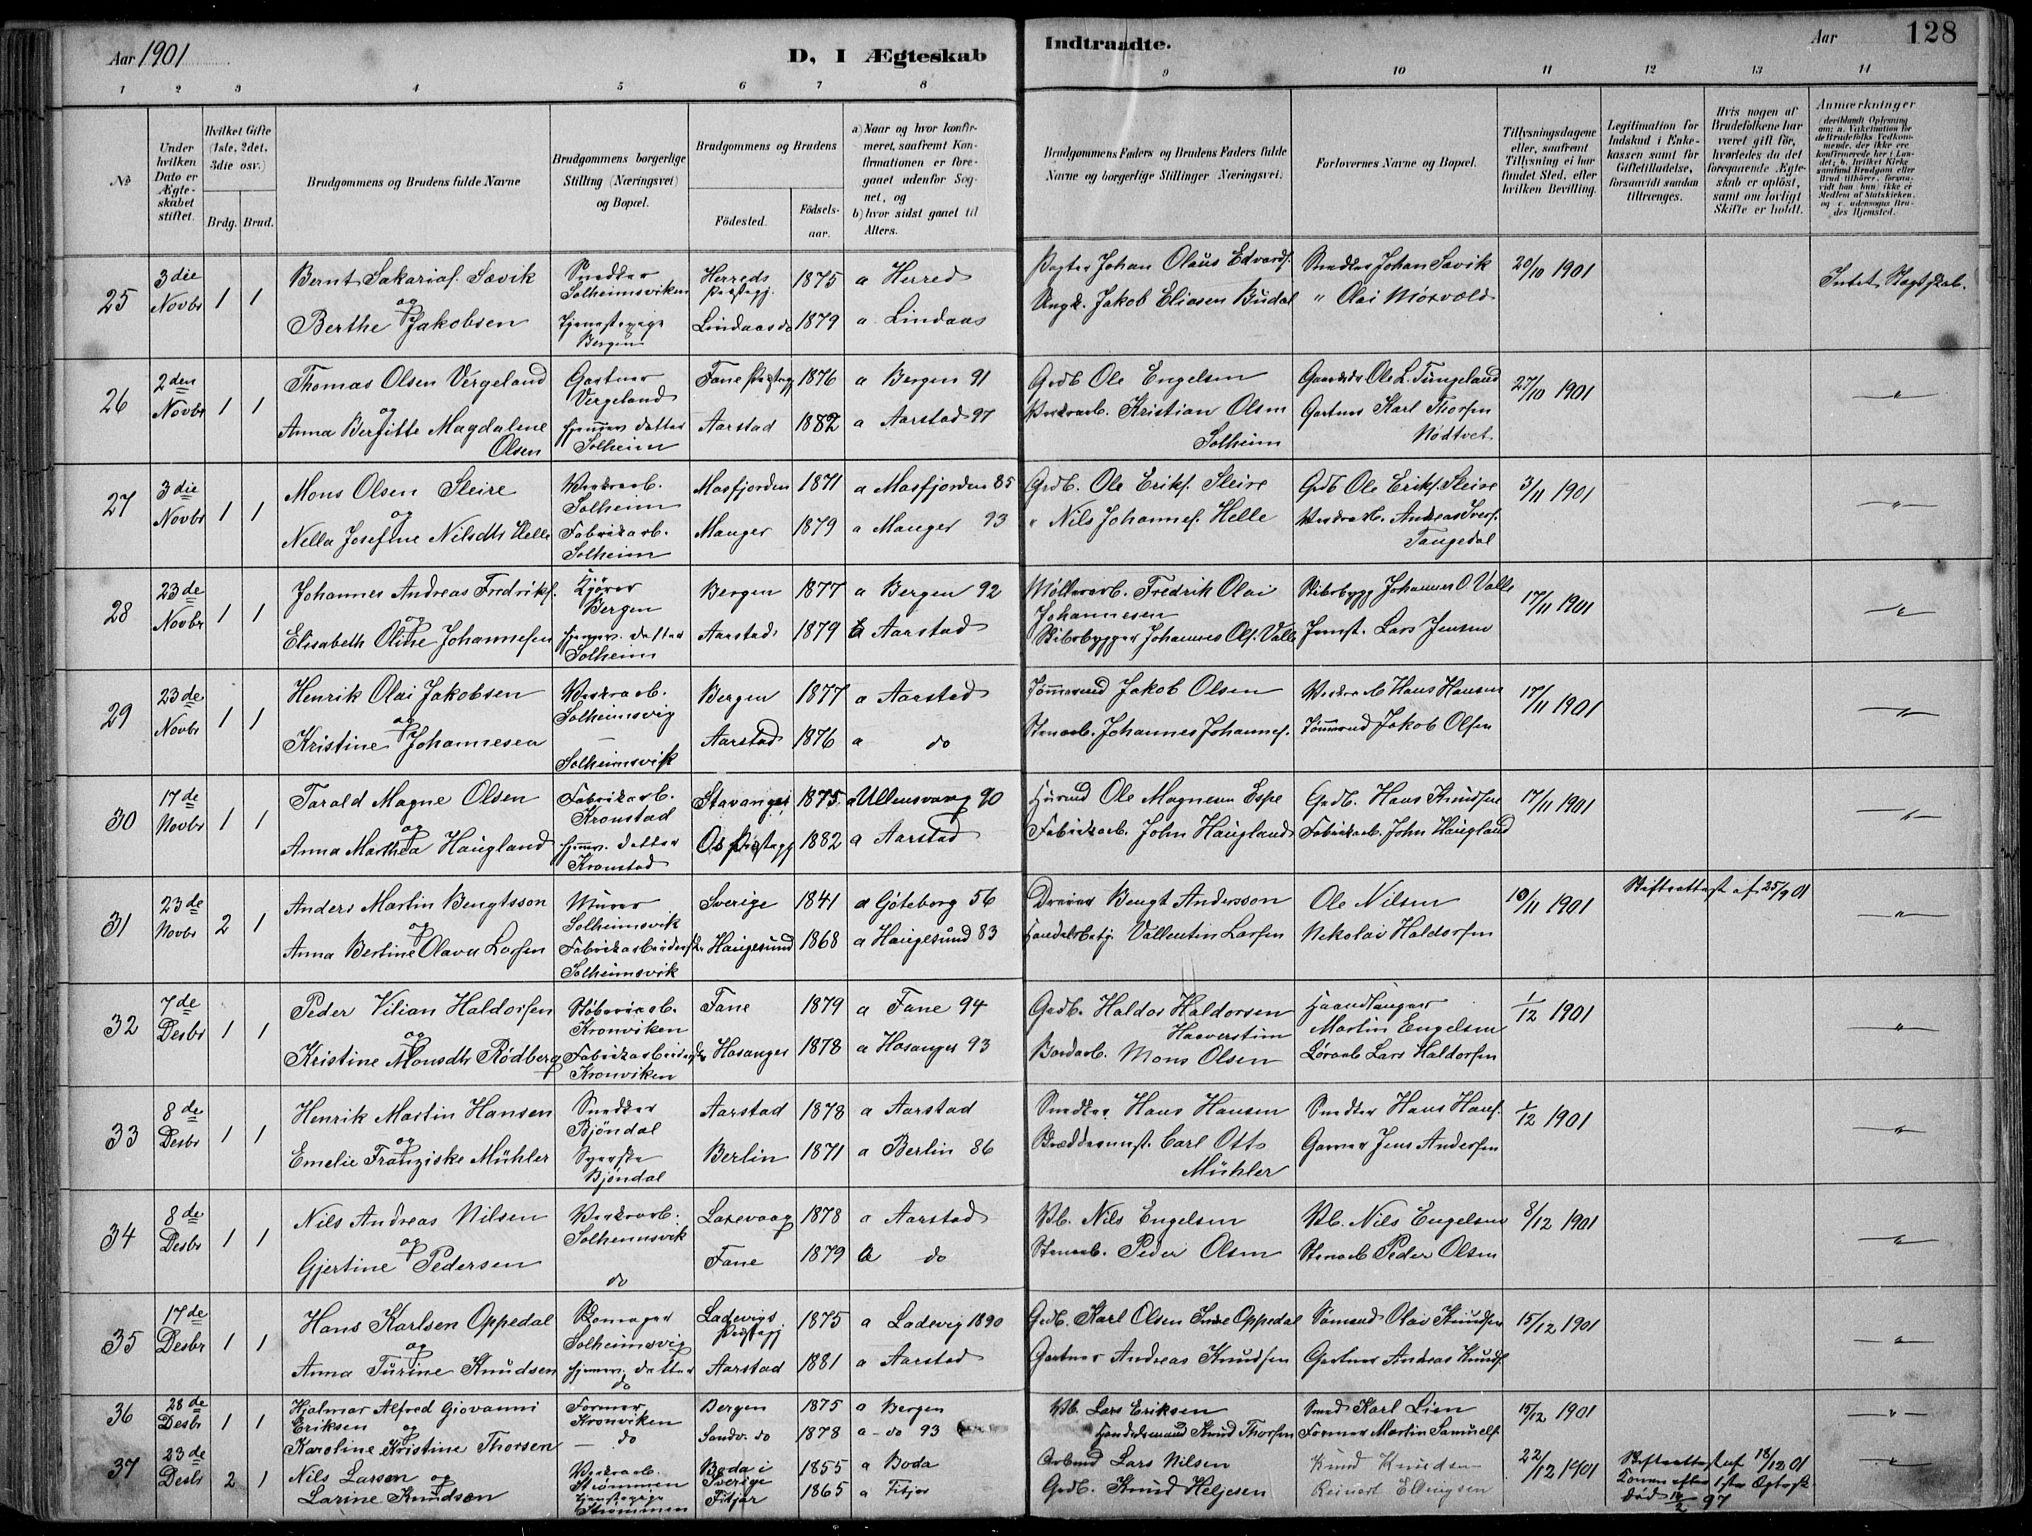 Aar 1901
D, I Ægteskab
Indtraadte.
Aar
128
1 2 3 4 5 6 7 8 9 10 11 12 13 14
No
Under hvilken Dato er Ægteskabet stiftet.
Hvilket Gifte (1ste, 2det, 3die osv.)
Brdg. Brud.
Brudgommens og Brudens fulde Navne
Brudgommens borgerlige Stilling (Næringsvei) og Bopæl.
Brudgommens og Brudens
Födested. Födsels-aar.
a) Naar og hvor konfirmeret, saafremt Konfirmationen er foregaaet udenfor Sognet, og
b) hvor sidst gaaet til Alters.
Brudgommens Faders og Brudens Faders fulde Navne og borgerlige Stillinger (Næringsvei.)
Forlovernes Navne og Bopæl.
Tillysningsdagene eller, saafremt Tillysning ei har fundet Sted, efter hvilken Bevilling.
Legitimation for Indskud i Enkekassen samt for Giftetilladelse, forsaavidt saadan tiltrænges.
Hvis nogen af Brudefolkene har været gift før, hvorledes da det foregaaende Ægteskab er oplöst, samt om lovligt Skifte er holdt.
Anmærkninger
25 3die Novbr 1 1
Bernt Sakarias. Sævik
og
Berthe Jakobsen
Snedker Solheimsviken
Tjenestepige Bergen
Herreds Præstegj. 1875 a Herred
Lindaas do 1879 a Lindaas
Johan Olaus Edvards.
Ungk. Jakob Eliasen Budal
Snedker Johan Savik
" Olai Morvold
20/10 1901
26 2den Novbr 1 1
Thomas Olsen Vergeland
og
Anna Berfitte Magdalene Olsen
Gartner Vergeland
hjemmev. datter Solheim
Fane Præstegj 1876 a Bergen 91
Aarstad 1882 a Aarstad 97
Grdb Ole Engelsen
Kristian Olsen Solheim
Ole L. Tungeland
Gartner Karl Thorsen Nödtvet
27/10 1901
"
27 3die Novbr 1 1
Mons Olsen Sleire
og
Nella Josefine Nilsdtr Helle
Verksarb. Solheim
Fabrikarb. Solheim
Masfjorden 1871 a Masfjorden 85
Manger 1879 a Manger 93
Grdb. Ole Eriks. Sleire
" Nils Johannes. Helle
Grdb Ole Eriks. Sleire
Verksarb. Andreas Ivers. Tangedal
3/11 1901
"
28 23de Novbr 1 1
Johannes Andreas Fredriks.
og
Elisabeth Olithe Johannesen
Kjörer Bergen
hjemmev. datter Solheim
Bergen 1877 a Bergen 92
Aarstad 1879 Aarstad
Møllerarb. Fredrik Olai Johannesen
Skibsbygger Johannes Ols. Valle
Skibsbygg Johannes O. Valle
Lars Jensen
17/11 1901
"
29 23de Novbr 1 1
Henrik Olai Jakobsen
og
Kristine Johannesen
Verksarb. Solheimsvig
— Solheimsvik
Bergen 1877 a Aarstad
Aarstad 1876 a do
Tömmermd Jakob Olsen
Stenarb. Johannes Johannes.
Verksarb Hans Hansen
Tömmermd Jakob Olsen
17/11 1901
"
30 17de Novbr 1 1
Tarald Magne Olsen
og
Anna Marthea Haugland
Fabrikarb. Kronstad
hjemmev. datter Kronstad
Stavanger 1875 a Ullensvang 90
Os Præstegj 1882 a Aarstad
Husmd Ole Magnesen Espe
Fabrikarb. John Haugland
Grdb. Hans Knudsen
Fabrikarb. John Haugland
17/11 1901
"
31 23de Novbr 2 1
Anders Martin Bengtsson
og
Anna Bertine Olava Larsen
Murer Solheimsvik
Fabrikarbeiderske Solheimsvik
Sverige 1841 a Göteborg 56
Haugesund 1868 a Haugesund 83
Dreier Bengt Andersson
Handelsbetj. Vallentin Larsen
Ole Nilsen
Nikolai Haldorsen
10/11 1901
Skifteattest af 25/9 01
"
32 7de Desbr 1 1
Peder Vilian Haldorsen
og
Kristine Monsdtr Rödberg
Støberiarb. Kronviken
Fabrikarbeiderske Kronviken
Fane 1879 a Fane 94
Hosanger 1878 a Hosanger 93
Grdb. Haldor Haldorsen Haaverstim
Mons Olsen
Haandlanger Martin Engelsen
Lars Haldorsen
1/12 1901
"
33 8de Desbr 1 1
Henrik Martin Hansen
og
Emelie Franziske Mühler
Snedker Bjöndal
Syerske Bjöndal
Aarstad 1878 a Aarstad
Berlin 1871 a Berlin 86
Snedker Hans Hansen
Carl Otto Mühler
Snedker Hans Hans.
Jens Andersen
1/12 1901
"
34 8de Desbr 1 1
Nils Andreas Nilsen
og
Gjertine Pedersen
Verksarb. Solheimsvik
do
Laxevaag 1878 a Aarstad
Fane 1879 do
Vb. Nils Engelsen
Stenarb. Peder Olsen
Vb. Nils Engelsen
Stenarb Peder Olsen
8/12 1901
"
35 17de Desbr 1 1
Hans Karlsen Oppedal
og
Anna Turine Knudsen
Skomager Solheimsvig
hjemmev. datter do
Ladevigs Præstegj 1875 a Ladevig 1890
Aarstad 1881 a Aarstad
Grdb. Karl Olsen Indre Oppedal
Gartner Andreas Knudsen
Sömand Olai Knudsen
Gartner Andreas Knuds.
15/12 1901
"
36 28de Desbr 1 1
Hjalmar Alfred Giovanni Eriksen
og
Karoline Kristine Thorsen
Former Kronviken
— do
Bergen 1875 a Bergen
Sandv. do 1878 a do 93
Vb. Lars Eriksen
Handelsmand Knud Thorsen
Smed Karl Lien
Former Martin Samuels.
15/12 1901
"
37 23de Desbr 2 1
Nils Larsen og
Larine Knudsen
Verksarb. Strömmen
Tjenestepige Strömmen
Boda i Sverige 1855 a Boda
Fitjar 1865 a Fitjar
Arbmd Lars Nilsen
Grdb. Knud Heljesen
Knud Knudsen
Reinert Ellingsen
22/12 1901
Skifteattest af 18/12 01
Konen efter 1ste Ægtesk. död 12/2 97
"